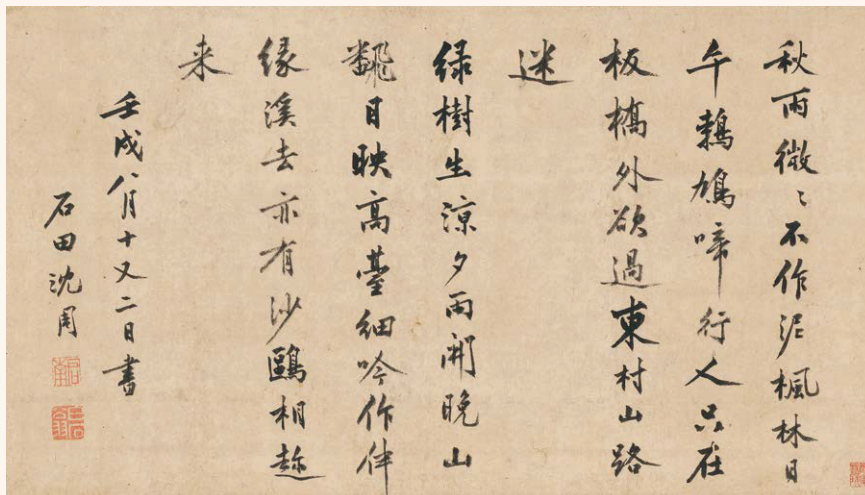 秋雨微〻不作泥楓林日
午鵓鳩啼行人只在
板橋外欲過東村山路
迷
緑樹生涼夕雨開晚山
飜目映高臺細吟作伴
縁溪去亦有沙鷗相趂
来
壬戌八月十又二日書
石田沈周
啟南
白石翁